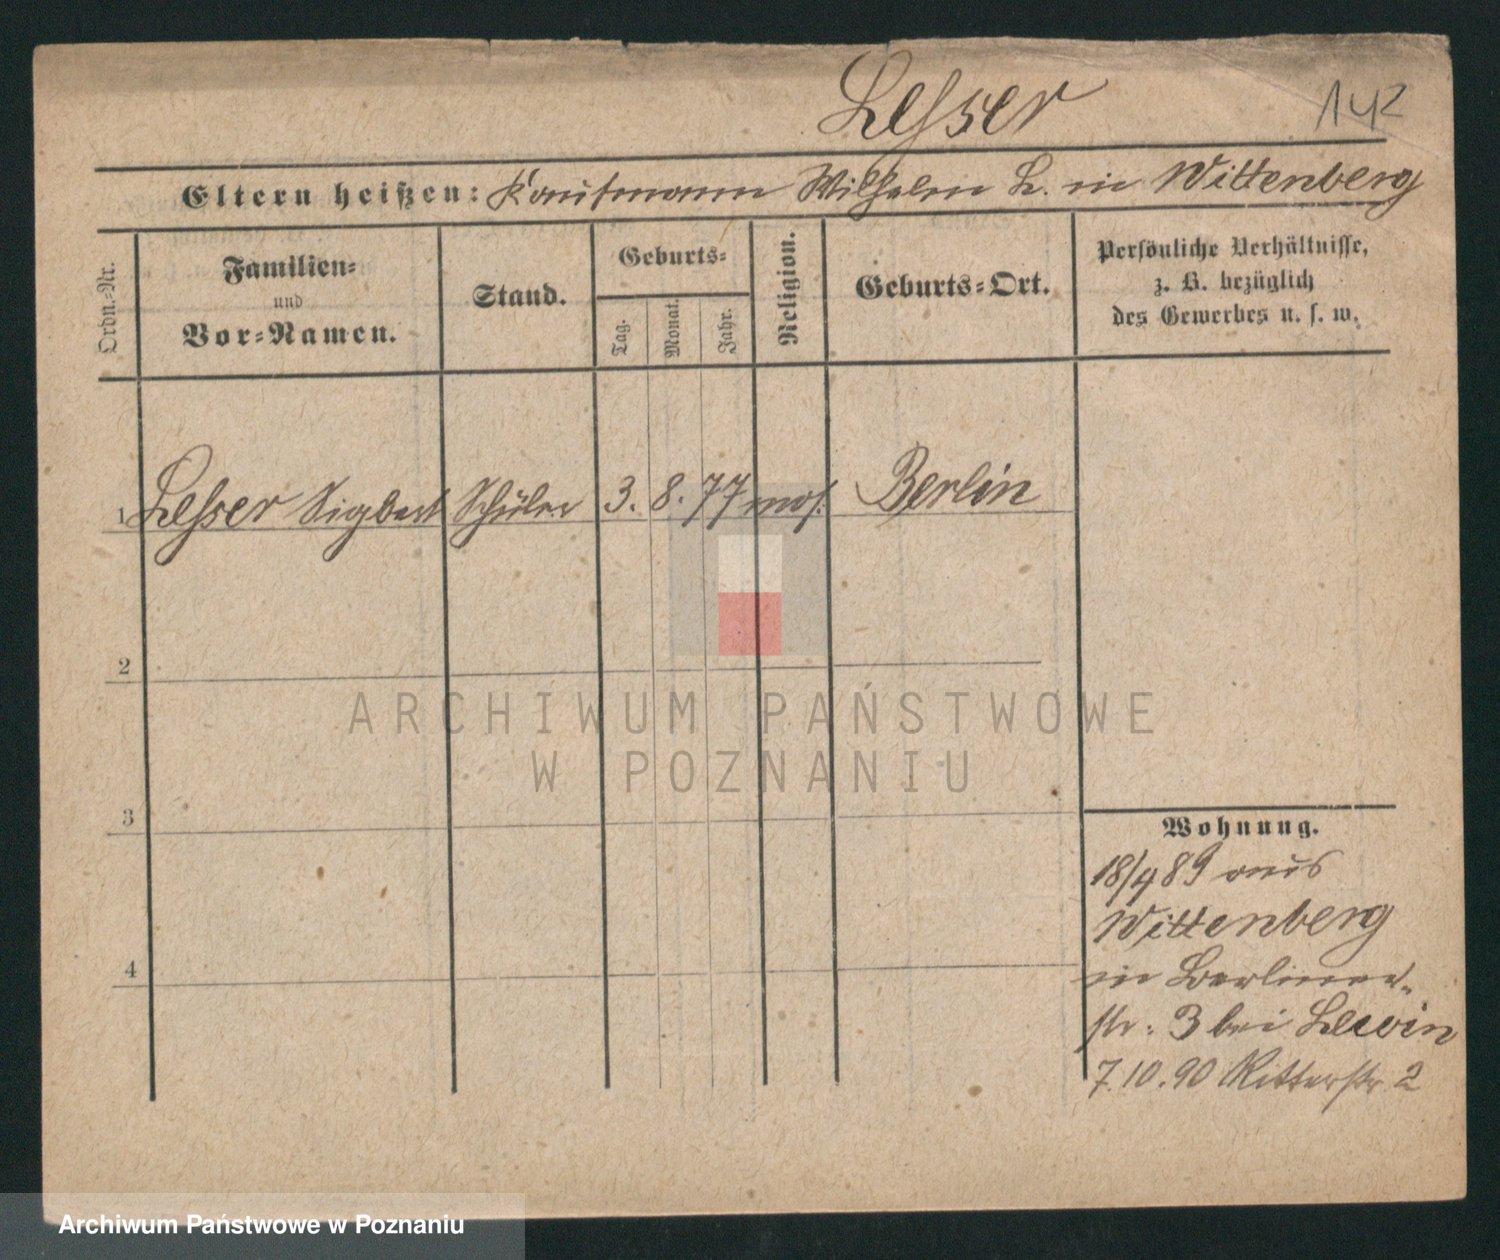 Lesser
142
Eltern heißen: Kaufmann Wilhelm L. in Wittenberg
Ordn.-Nr.
Familien-
und
Vor-Namen.
Stand.
Geburts-
Tag.
Monat.
Jahr.
Religion.
Geburts-Ort.
Persönliche Verhältnisse,
z. B. bezüglich
des Gewerbes u. s. w.
1 Lesser Sigbert Schüler 3. 8. 77 mos. Berlin
2
3
4
Wohnung.
18/4 89 aus
Wittenberg
in Berliner-
str. 3 bei Lewin
7.10.90 Ritterstr. 2
ARCHIWUM PAŃSTWOWE
W POZNANIU
Archiwum Państwowe w Poznaniu